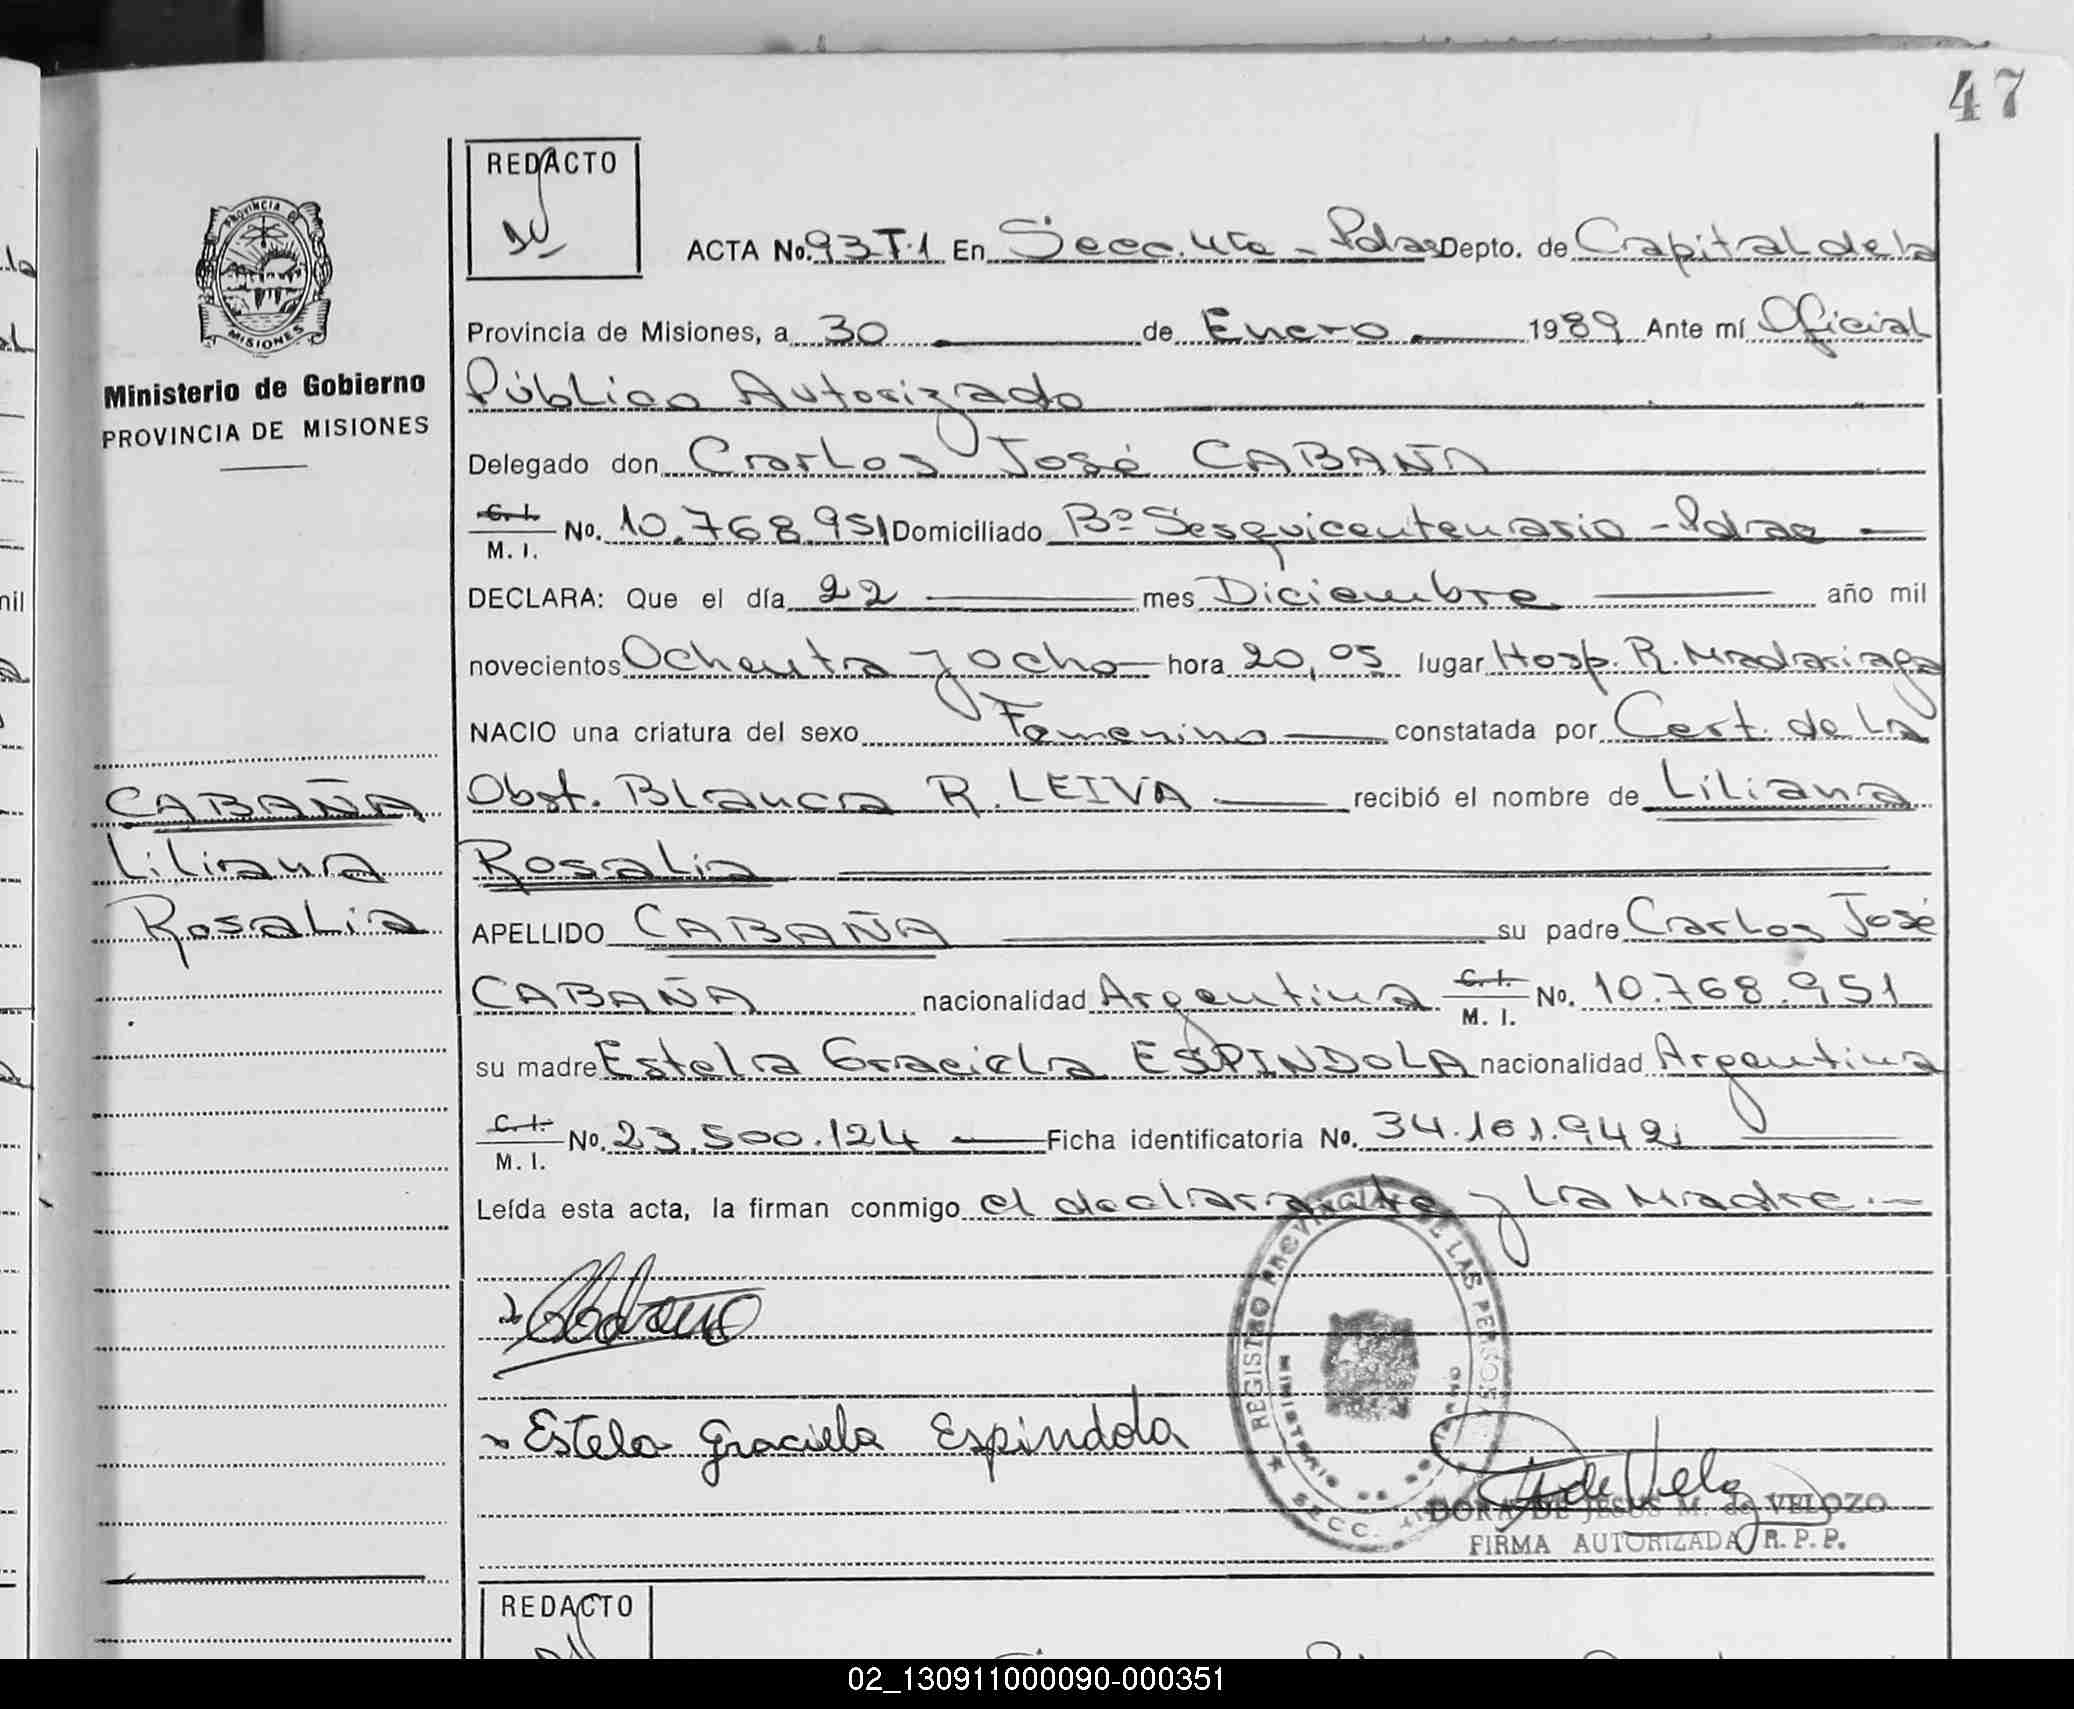 47
REDACTO
PROVINCIA DE
MISIONES
Ministerio de Gobierno
PROVINCIA DE MISIONES
CABAÑA
Liliana
Rosalia
ACTA No. 93 T.1 En Secc. 4ta - Pdas Depto. de Capital de la
Provincia de Misiones, a 30 de Enero 1989 Ante mí Oficial
Público Autorizado
Delegado don Carlos José CABAÑA
C. I. M. I. No. 10.768.951 Domiciliado Bº Sesquicentenario - Pdas
DECLARA: Que el día 22 mes Diciembre año mil
novecientos Ochenta y ocho hora 20,05 lugar Hosp. R. Madariaga
NACIO una criatura del sexo Femenino constatada por Cert. de la
Obst. Blanca R. LEIVA recibió el nombre de Liliana
Rosalia
APELLIDO CABAÑA su padre Carlos José
CABAÑA nacionalidad Argentina C. I. M. I. No. 10.768.951
su madre Estela Graciela ESPINDOLA nacionalidad Argentina
C. I. M. I. No. 23.500.124 Ficha identificatoria No. 34.161.942
Leída esta acta, la firman conmigo el declarante y la Madre.-
Estela Graciela Espindola
REGISTRO PROVINCIAL DE LAS PERSONAS
SECC.
DORA DE JESUS M. de VELOZO
FIRMA AUTORIZADA R. P. P.
REDACTO
02_130911000090-000351